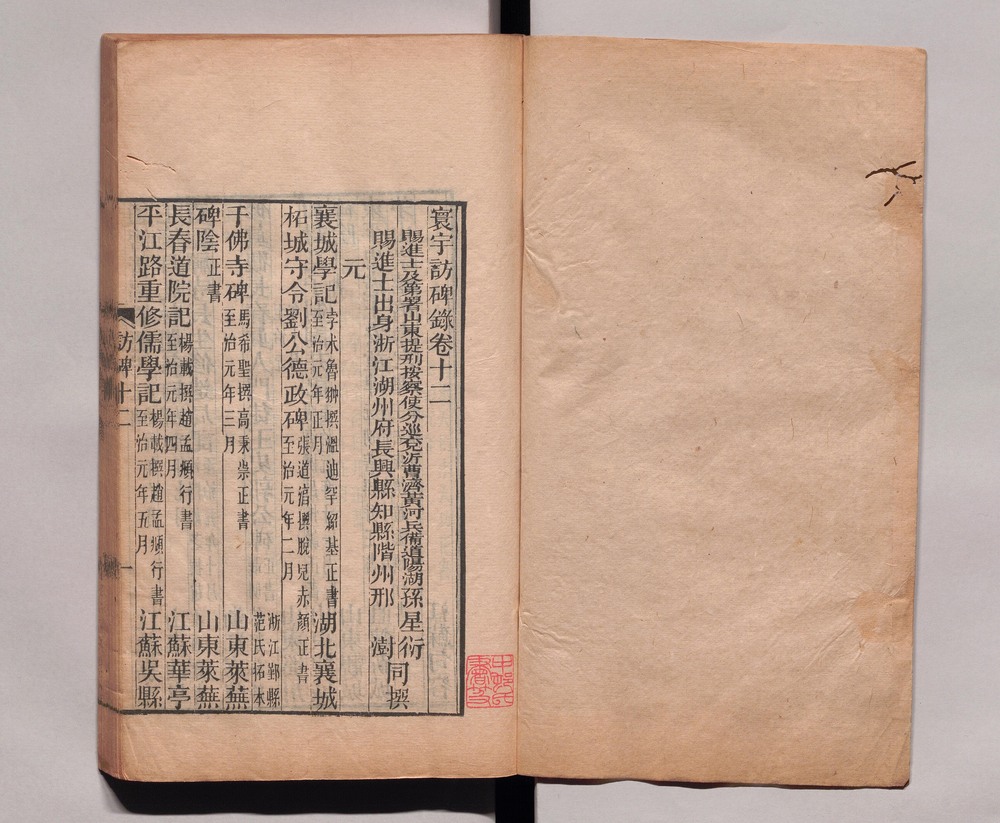 寰宇訪碑錄卷十二
賜進士及第署山東提刑按察使分巡兗沂曹濟黃河兵備道陽湖孫星衍
賜進士出身浙江湖州府長興縣知縣階州邢澍
同撰
元
襄城學記
孛朮魯翀撰溫迪罕紹基正書
至治元年正月
湖北襄城
柘城守令劉公德政碑
張道㵎撰脫兒赤顏正書
至治元年二月
浙江鄞縣
范氏拓本
千佛寺碑
馬希聖撰高秉崇正書
至治元年三月
山東萊蕪
碑陰
正書
山東萊蕪
長春道院記
楊載撰趙孟頫行書
至治元年四月
江蘇華亭
平江路重修儒學記
楊載撰趙孟頫行書
至治元年五月
江蘇吳縣
訪碑十二
一